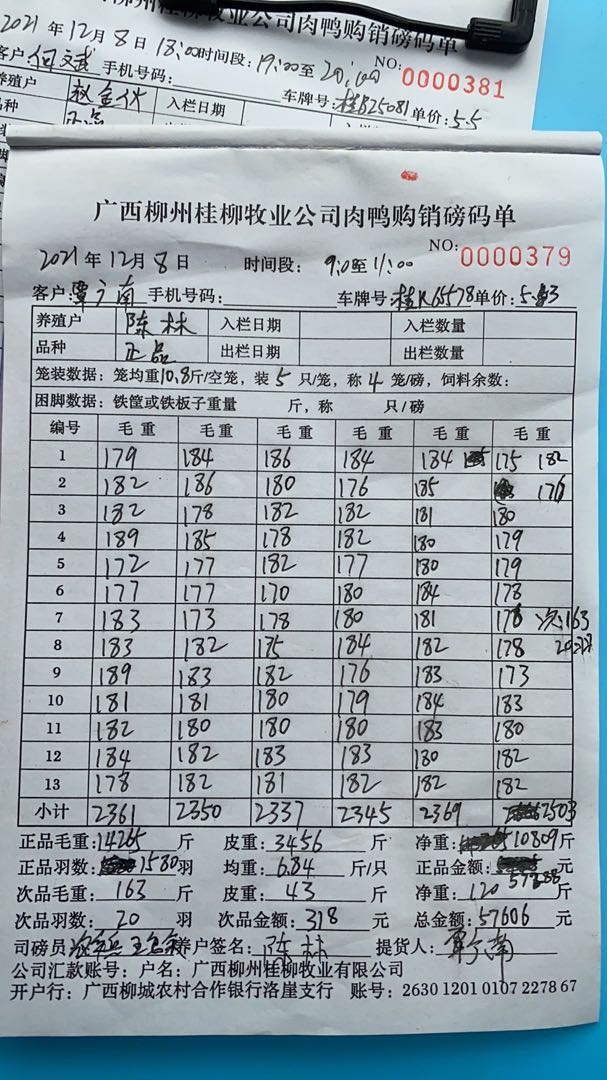 柳州桂柳牧业公司肉鸭购销磅码单
2021年12月8日 18:00时间段:19:00至20:00 NO:0000381
客户:何文武 手机号码: 车牌号:桂B25081单价:5.5
养殖户 入栏日期
品种 正品
广西柳州桂柳牧业公司肉鸭购销磅码单
NO:0000379
2021年12月8日 时间段: 9:0至11:00
客户:覃宁南 手机号码: 车牌号:桂R65578单价:
养殖户 陈林 入栏日期 入栏数量
品种 正品 出栏日期 出栏数量
笼装数据:笼均重10.8斤/空笼,装5只/笼,称4笼/磅,饲料余数:
困脚数据:铁筐或铁板子重量 斤,称 只/磅
编号 毛重 毛重 毛重 毛重 毛重 毛重
1 179 184 186 184 184 175 182
2 182 186 180 176 185 176
3 182 178 182 182 181 180
4 189 185 178 182 180 179
5 172 177 182 177 180 179
6 177 177 170 180 184 178
7 183 173 178 180 181 178 次:163
8 183 182 175 184 182 178 20只
9 189 183 182 176 183 173
10 181 181 180 179 184 183
11 182 180 180 180 183 180
12 184 182 183 183 180 182
13 178 182 181 182 182 182
小计 2361 2350 2337 2345 2369 2503
正品毛重:14265斤 皮重:3456斤 净重:10809斤
正品羽数:1580羽 均重:6.84斤/只 正品金额:57288元
次品毛重:163斤 皮重:43斤 净重:120斤
次品羽数:20羽 次品金额:318元 总金额:57606元
司磅员 养户签名:陈林 提货人:覃宁南
公司汇款账号:户名:广西柳州桂柳牧业有限公司
开户行:广西柳城农村合作银行洛崖支行 账号:2630 1201 0107 2278 67